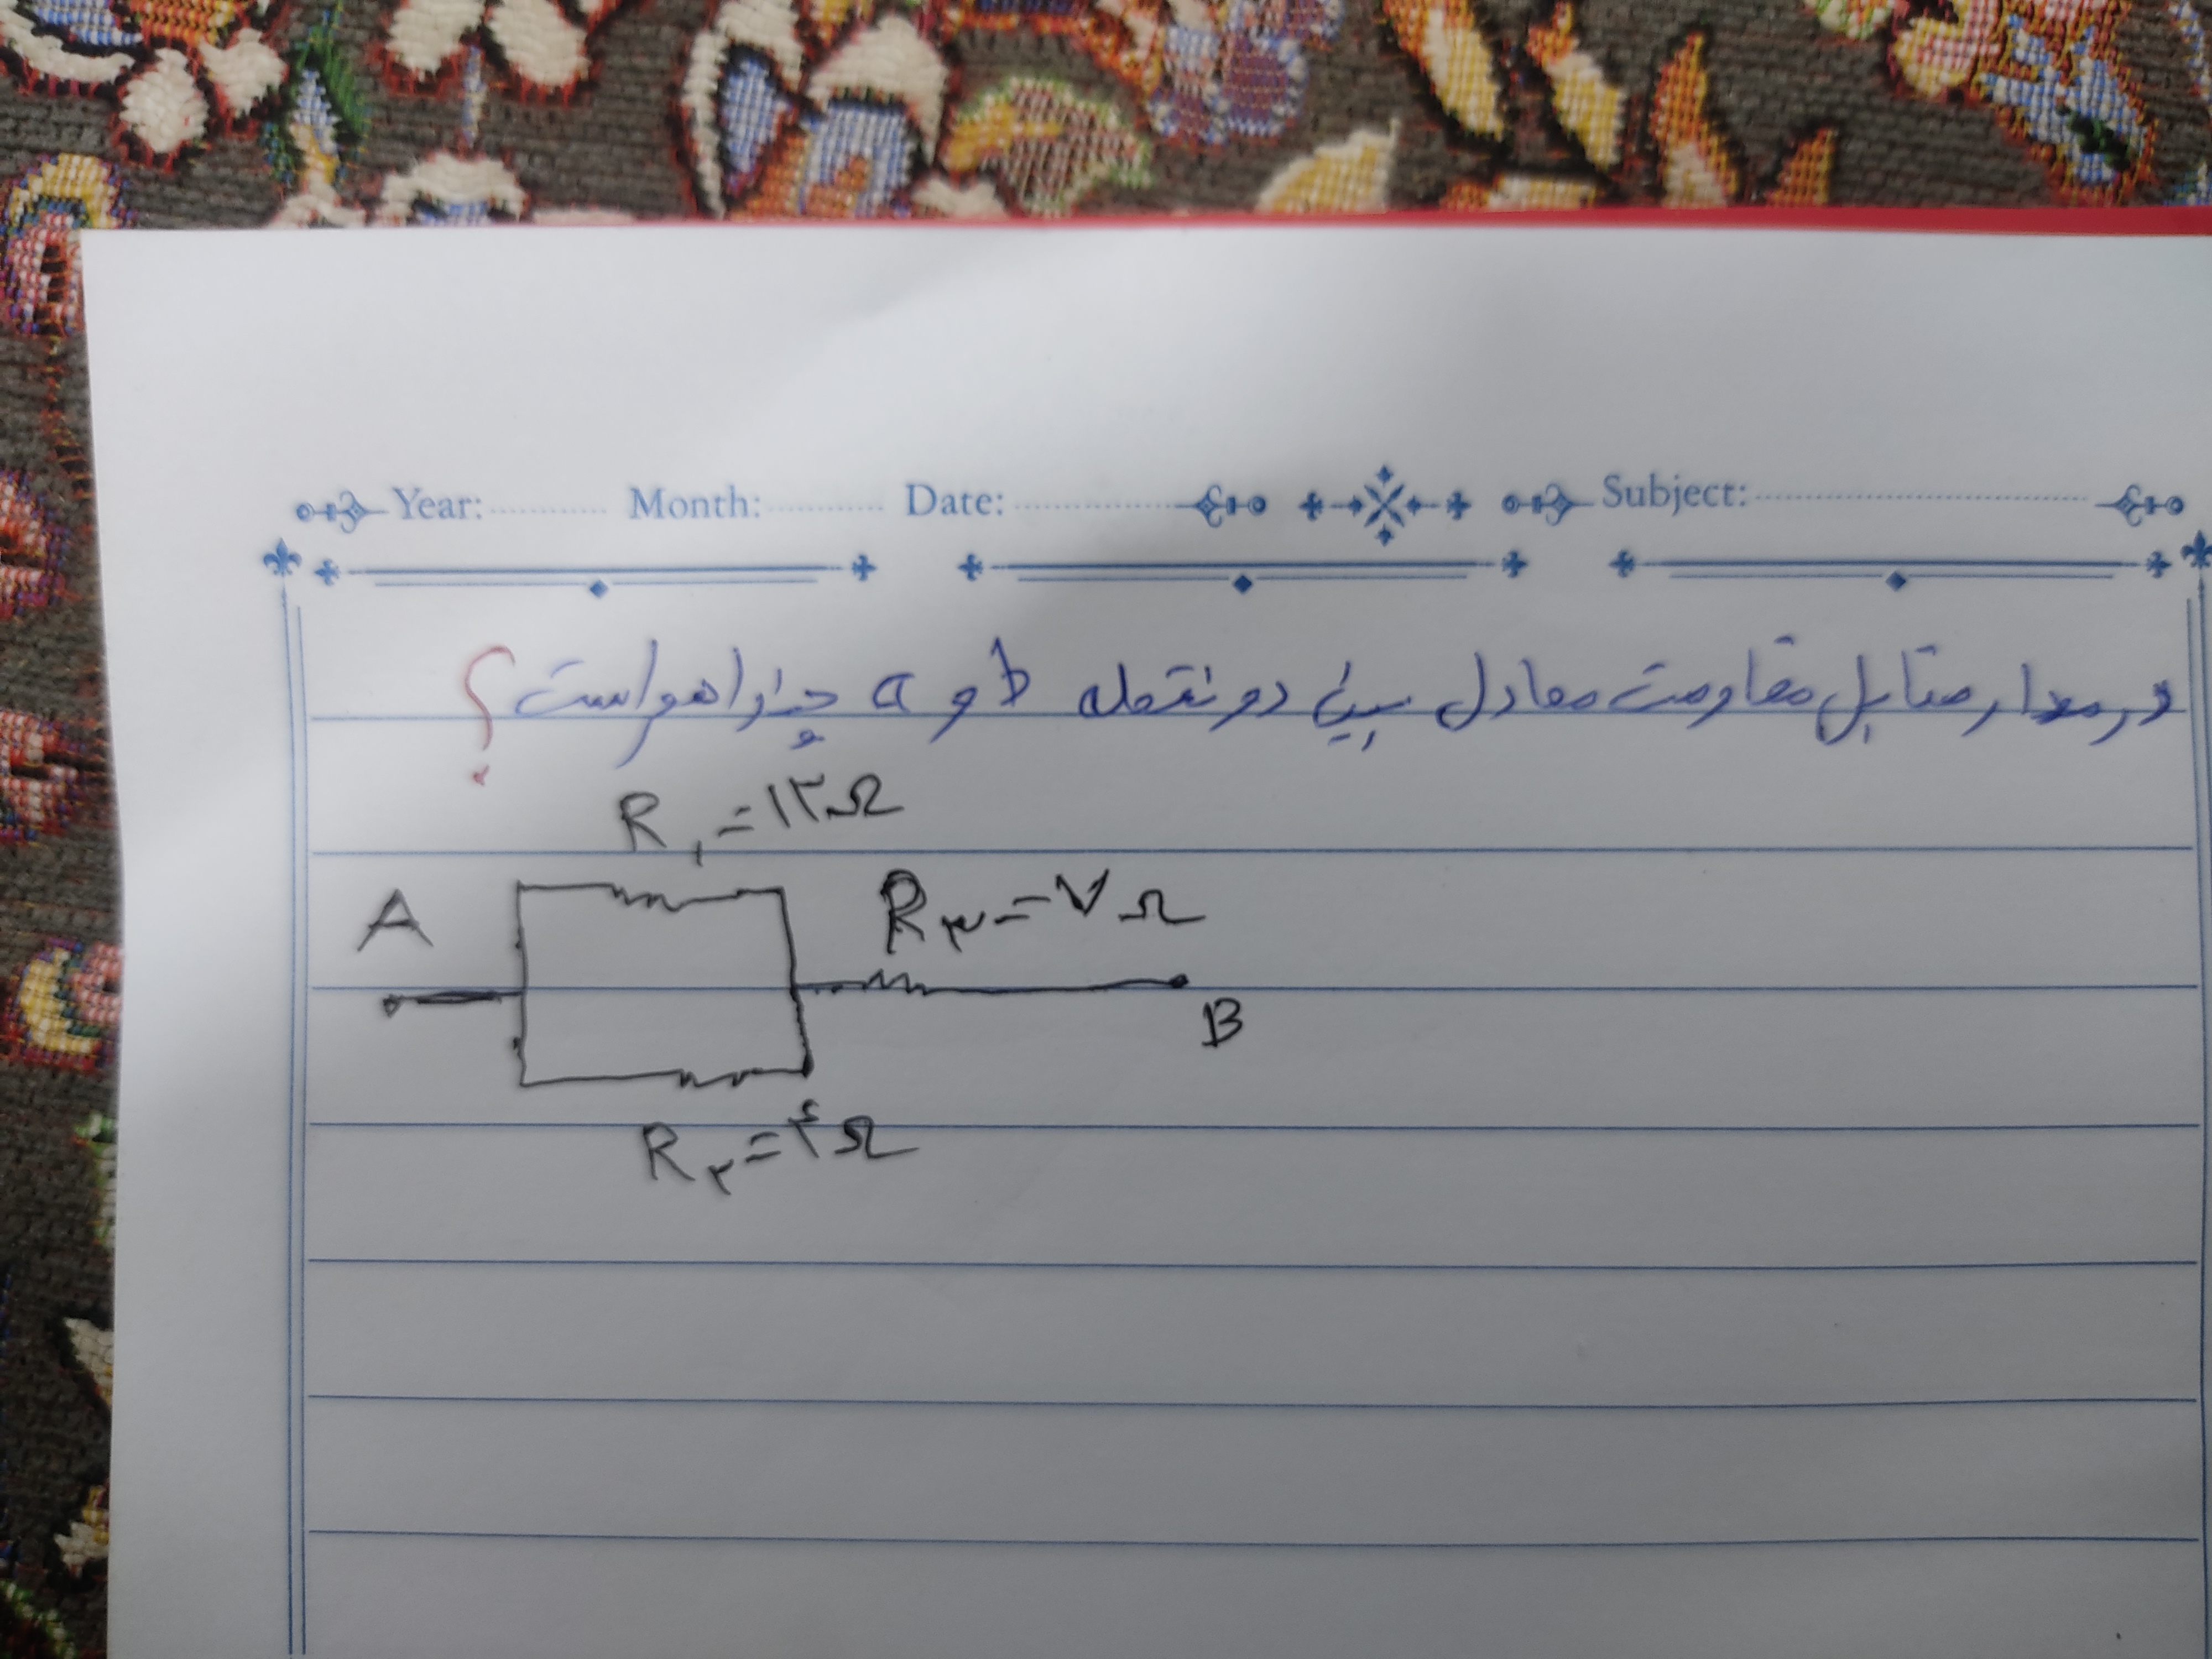 Year: Month: Date: Subject:
در مدار مقابل مقاومت معادل بین دو نقطه b و a چند اهم است؟
R۱=۱۲Ω
A
R۳=۷Ω
B
R۲=۴Ω